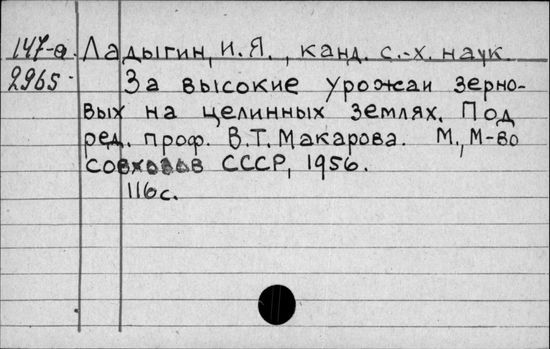 147-а Ладыгин, И.Я., канд. с.-х. наук
2965 За высокие урожаи зерно-
вых на целинных землях. Под
ред. проф. В.Т. Макарова. М., М-во
совхозов СССР, 1956.
116с.